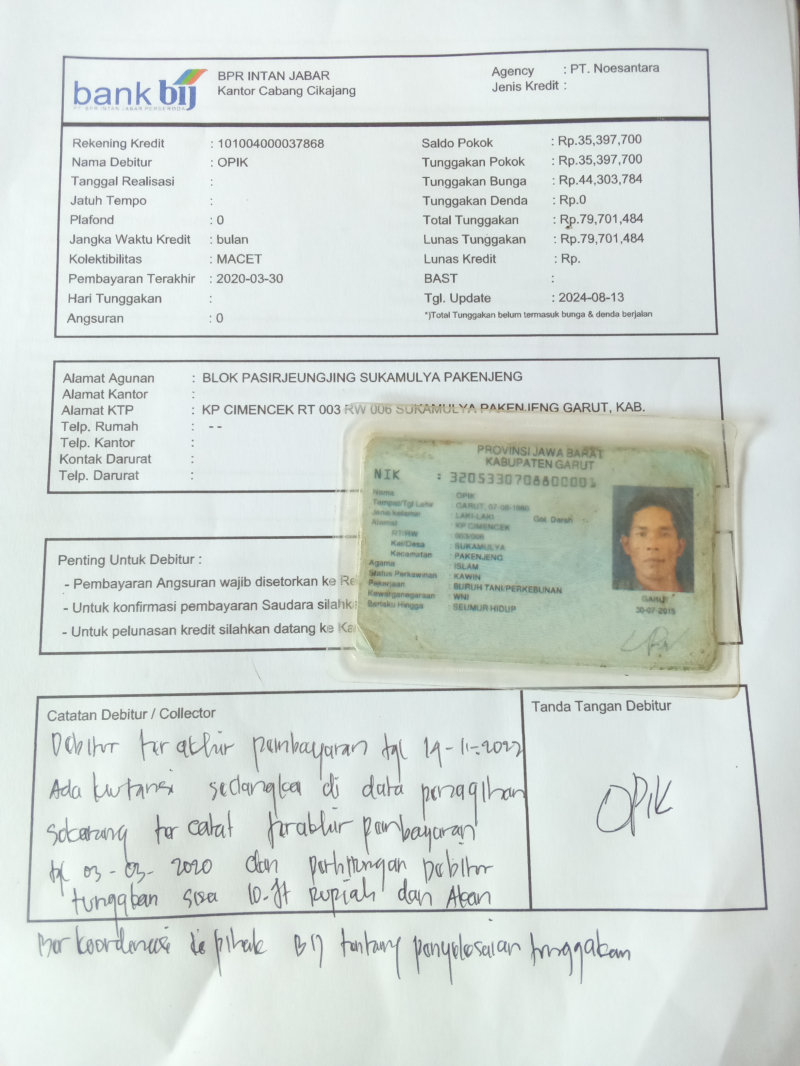 bank bij
PT. BPR INTAN JABAR PERSERODA
BPR INTAN JABAR
Kantor Cabang Cikajang
Agency : PT. Noesantara
Jenis Kredit :
Rekening Kredit : 101004000037868
Nama Debitur : OPIK
Tanggal Realisasi :
Jatuh Tempo :
Plafond : 0
Jangka Waktu Kredit : bulan
Kolektibilitas : MACET
Pembayaran Terakhir : 2020-03-30
Hari Tunggakan :
Angsuran : 0
Saldo Pokok : Rp.35,397,700
Tunggakan Pokok : Rp.35,397,700
Tunggakan Bunga : Rp.44,303,784
Tunggakan Denda : Rp.0
Total Tunggakan : Rp.79,701,484
Lunas Tunggakan : Rp.79,701,484
Lunas Kredit : Rp.
BAST :
Tgl. Update : 2024-08-13
*)Total Tunggakan belum termasuk bunga & denda berjalan
Alamat Agunan : BLOK PASIRJEUNGJING SUKAMULYA PAKENJENG
Alamat Kantor :
Alamat KTP : KP CIMENCEK RT 003 RW 006 SUKAMULYA PAKENJENG GARUT, KAB.
Telp. Rumah : --
Telp. Kantor :
Kontak Darurat :
Telp. Darurat :
PROVINSI JAWA BARAT
KABUPATEN GARUT
NIK : 3205330708800001
Nama : OPIK
Tempat/Tgl Lahir : GARUT, 07-08-1980
Jenis kelamin : LAKI-LAKI Gol. Darah
Alamat : KP CIMENCEK
RT/RW : 003/006
Kel/Desa : SUKAMULYA
Kecamatan : PAKENJENG
Agama : ISLAM
Status Perkawinan : KAWIN
Pekerjaan : BURUH TANI/PERKEBUNAN
Kewarganegaraan : WNI
Berlaku Hingga : SEUMUR HIDUP
GARUT
30-07-2015
Penting Untuk Debitur :
- Pembayaran Angsuran wajib disetorkan ke Re
- Untuk konfirmasi pembayaran Saudara silahk
- Untuk pelunasan kredit silahkan datang ke Ka
Catatan Debitur / Collector
Debitur terakhir pembayaran tgl 14-11-2022
Ada kwitansi sedangkan di data penagihan
sekarang tercatat terakhir pembayaran
tgl 03-03-2020 dan perhitungan Debitur
tunggakan sisa 10.Jt rupiah dan Akan
Ber koordinasi ke pihak BIJ tentang penyelesaian tunggakan
Tanda Tangan Debitur
OPIK